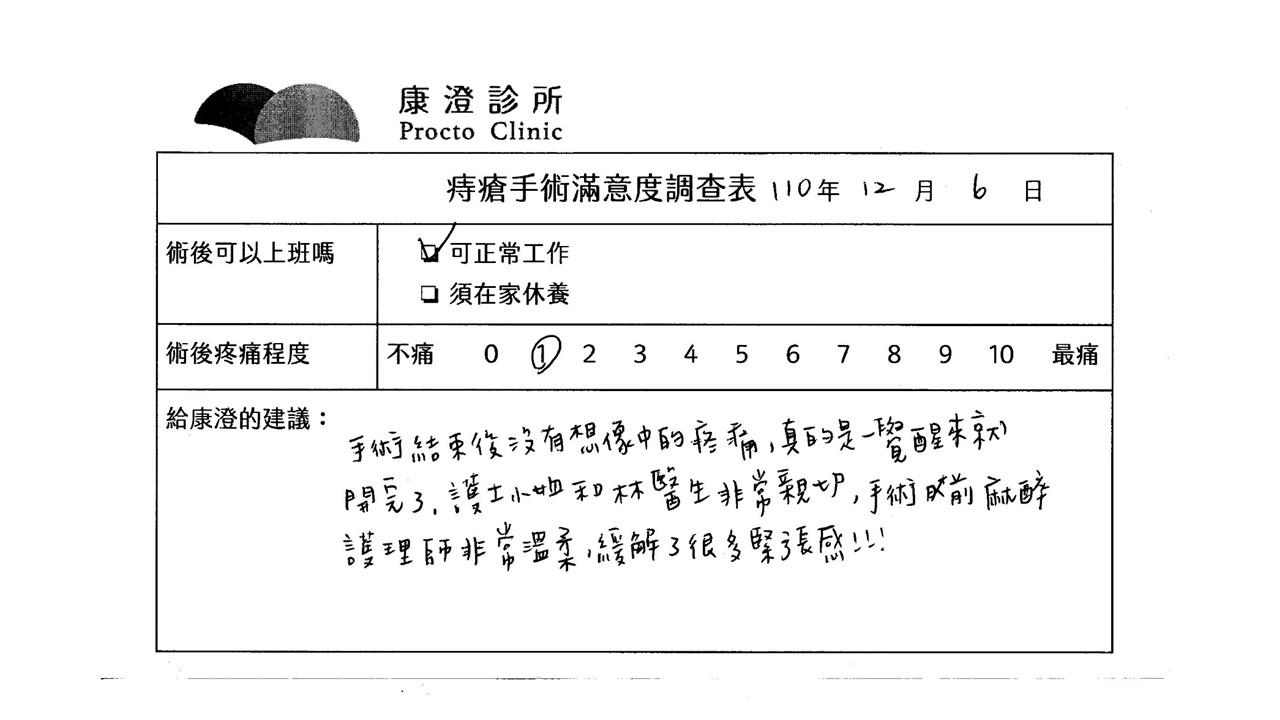 康澄診所
Procto Clinic
痔瘡手術滿意度調查表 110年 12 月 6 日
術後可以上班嗎
☑ 可正常工作
☐ 須在家休養
術後疼痛程度 不痛 0 1 2 3 4 5 6 7 8 9 10 最痛
給康澄的建議：
手術結束後沒有想像中的疼痛,真的是一覺醒來就
開完了,護士小姐和林醫生非常親切,手術前麻醉
護理師非常溫柔,緩解了很多緊張感!!!